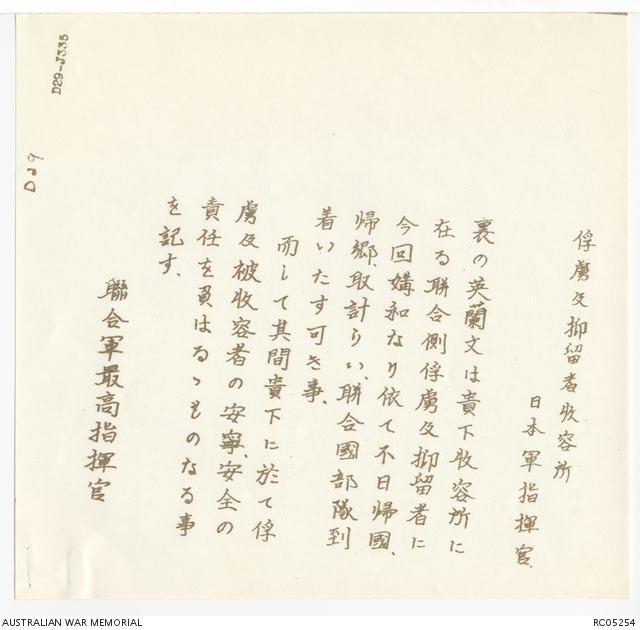 俘虜及抑留者收容所
日本軍指揮官
裏の英蘭文は貴下收容所に
在る聯合側俘虜及抑留者に
今回媾和なり依て不日帰國、
帰郷、取計らい、聯合國部隊到
着いたす可き事、
而して其間貴下に於て俘
虜及被收容者の安寧、安全の
責任を負はるゝものなる事
を記す、
聯合軍最高指揮官
D29
D29-J335
AUSTRALIAN WAR MEMORIAL
RC05254